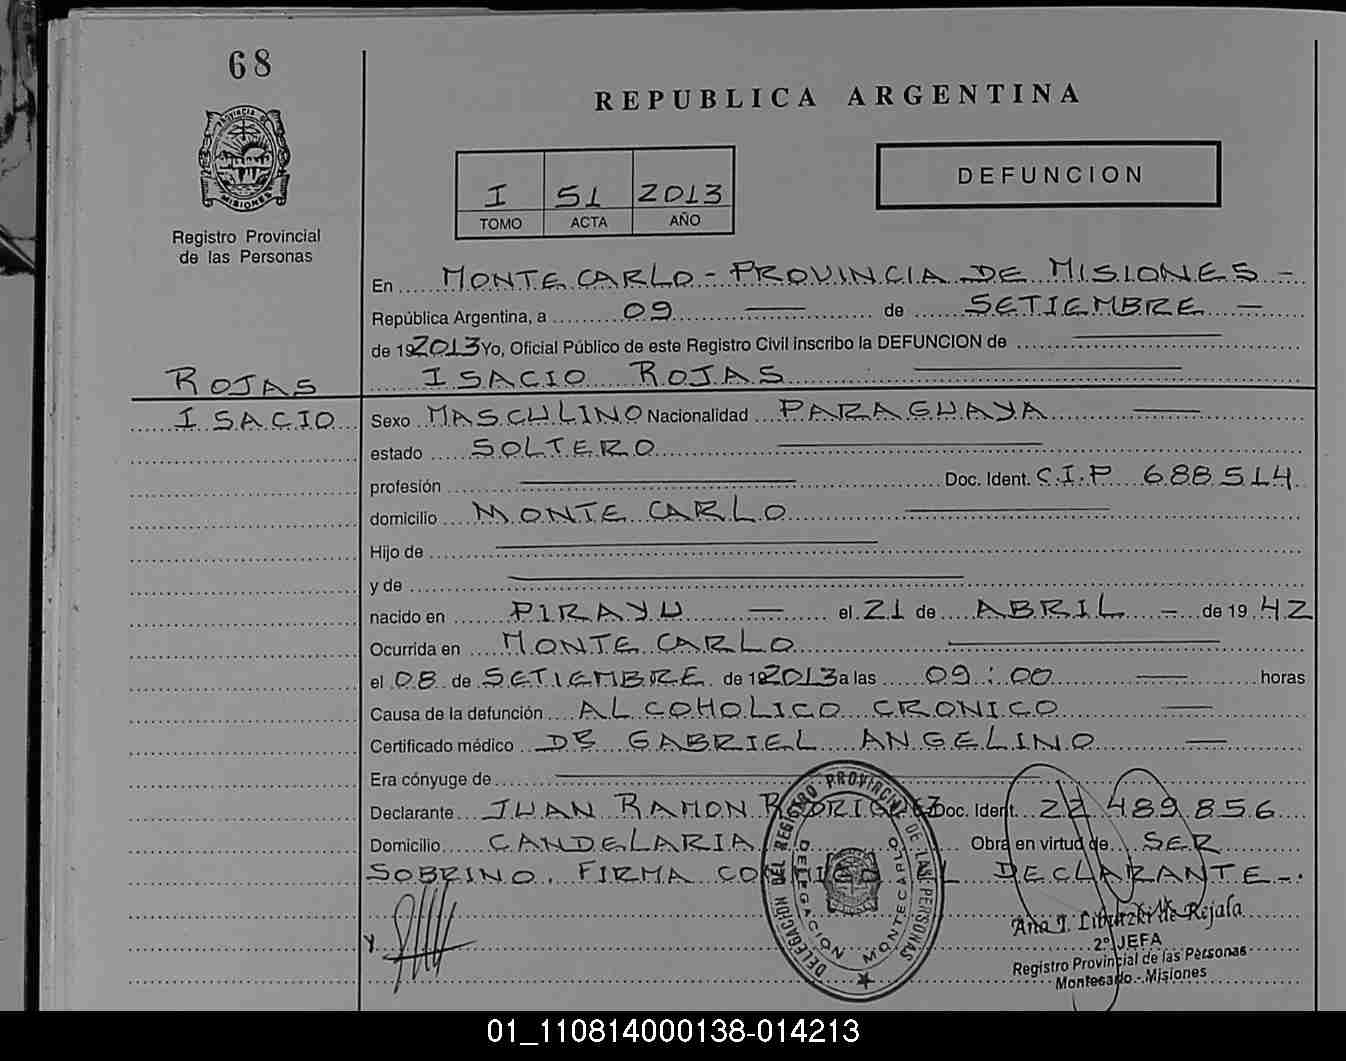 68
REPUBLICA ARGENTINA
PROVINCIA DE
MISIONES
Registro Provincial
de las Personas
I 51 2013
TOMO ACTA AÑO
DEFUNCION
En MONTECARLO - PROVINCIA DE MISIONES -
República Argentina, a 09 — de SETIEMBRE —
de 192013 Yo, Oficial Público de este Registro Civil inscribo la DEFUNCION de
ROJAS
ISACIO ROJAS
ISACIO
Sexo MASCULINO Nacionalidad PARAGUAYA
estado SOLTERO
profesión Doc. Ident. C.I.P 688514
domicilio MONTE CARLO
Hijo de
y de
nacido en PIRAYU — el 21 de ABRIL - de 19 42
Ocurrida en MONTECARLO
el 08 de SETIEMBRE de 192013 a las 09:00 — horas
Causa de la defunción ALCOHOLICO CRONICO —
Certificado médico DR GABRIEL ANGELINO —
Era cónyuge de
Declarante JUAN RAMON RODRIGUEZ Doc. Ident. 22.489.856
Domicilio CANDELARIA Obra en virtud de SER
SOBRINO. FIRMA CONMIGO EL DECLARANTE-.
DELEGACION DEL REGISTRO PROVINCIAL DE LAS PERSONAS
DELEGACION MONTECARLO
2º JEFA
Registro Provincial de las Personas
Montecarlo - Misiones
01_110814000138-014213